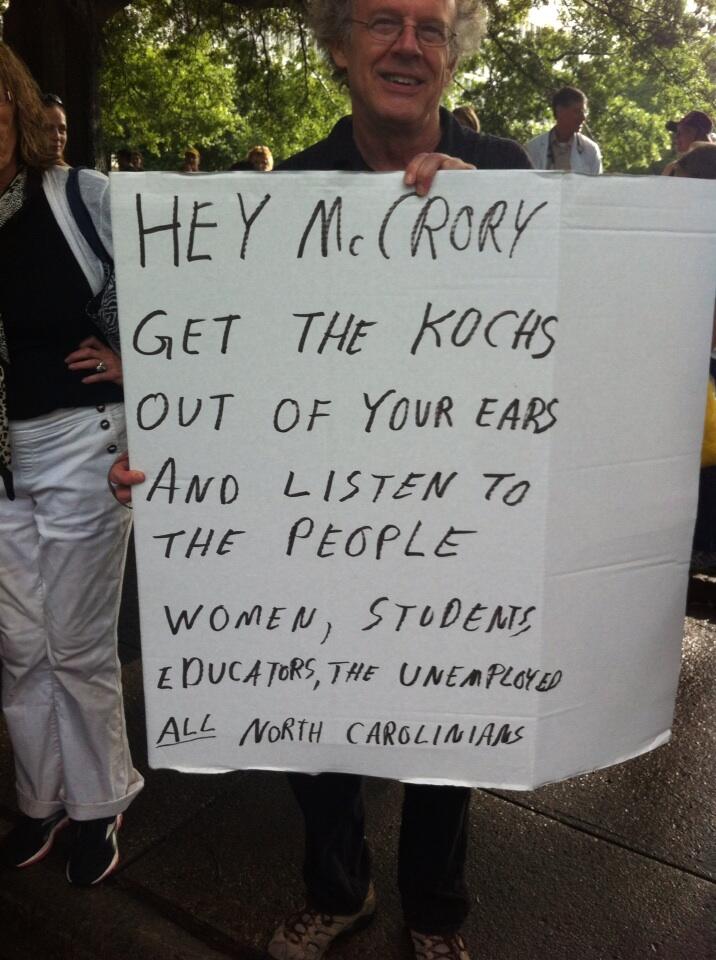 HEY McCRORY
GET THE KOCHS
OUT OF YOUR EARS
AND LISTEN TO
THE PEOPLE
WOMEN, STUDENTS
EDUCATORS, THE UNEMPLOYED
ALL NORTH CAROLINIANS